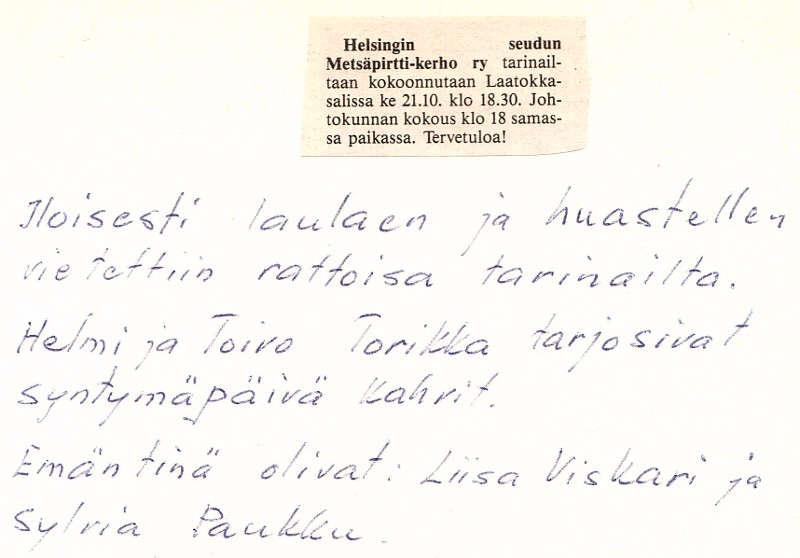 Helsingin seudun
Metsäpirtti-kerho ry tarinail-
taan kokoonnutaan Laatokka-
salissa ke 21.10. klo 18.30. Joh-
tokunnan kokous klo 18 samas-
sa paikassa. Tervetuloa!
Iloisesti laulaen ja huastellen
vietettiin rattoisa tarinailta.
Helmi ja Toivo Torikka tarjosivat
syntymäpäivä kahvit.
Emäntinä olivat: Liisa Viskari ja
Sylvia Paukku.